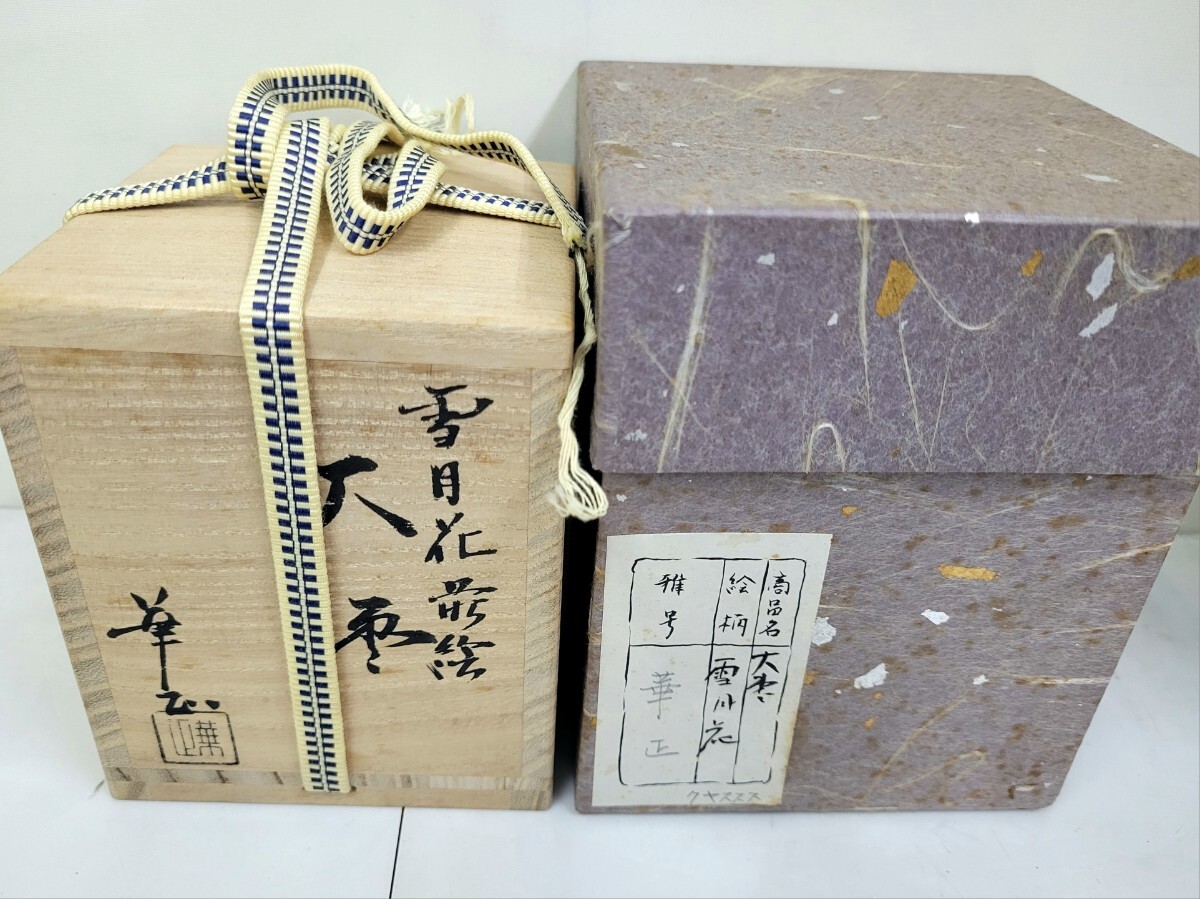 雪月花蒔絵
大棗
華正
華正
商品名
大棗
絵柄
雪月花
雅号
華正
クヤスススス